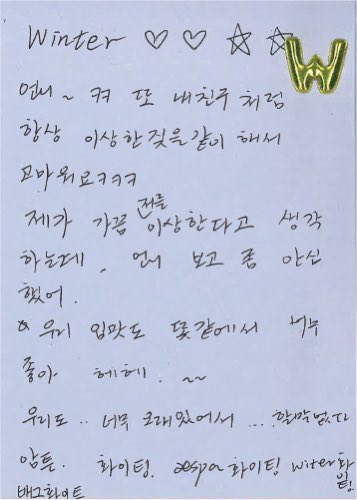 Winter ♡ ♡ ☆ ☆ W
언니~ ㅋㅋ 또 내친구 처럼
항상 이상한 짓을 같이 해서
고마워요ㅋㅋㅋ
제가 가끔 저를 이상한다고 생각
하는데, 언니 보고 좀 안심
했어.
& 우리 입맛도 똑같에서 너무
좋아 헤헤. ~~
우리도.. 너무 오래있어서 .... 할말없다
암튼. 화이팅. aespa 화이팅 winter 화이팅
배고화이트